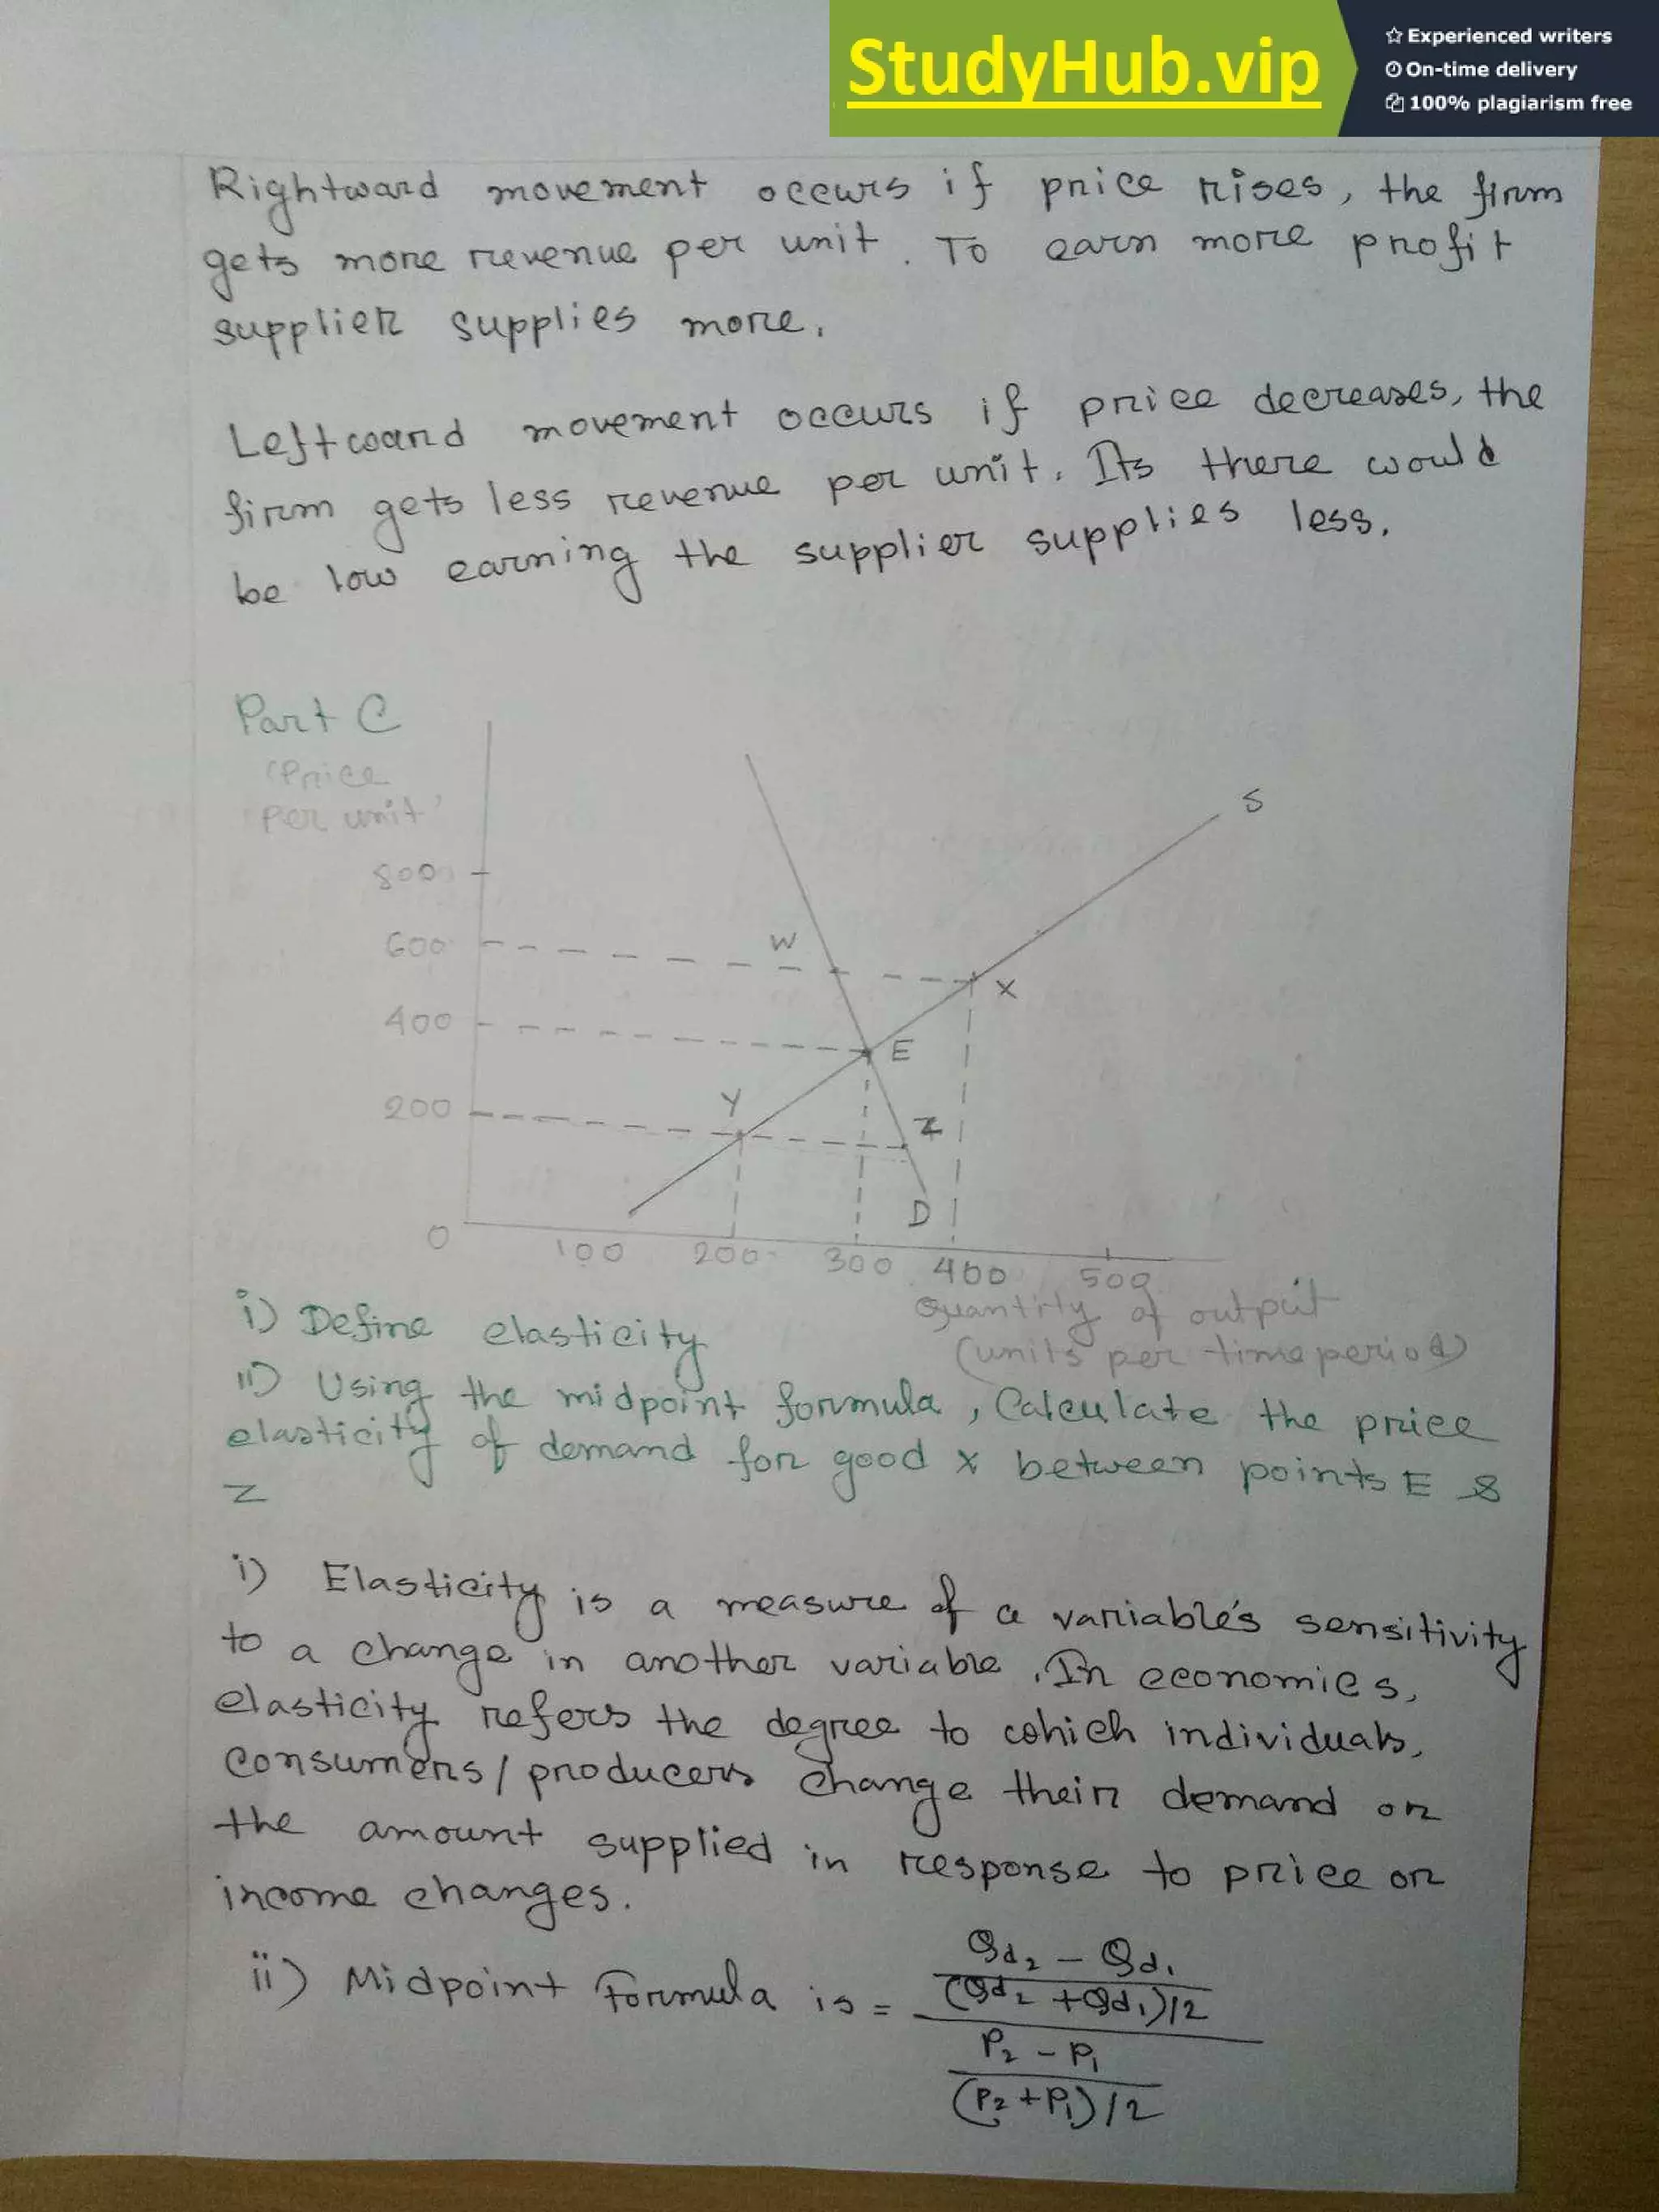 StudyHub.vip
Experienced writers
On-time delivery
100% plagiarism free
Rightward movement occurs if price rises, the firm
gets more revenue per unit. To earn more profit
supplier supplies more.
Leftward movement occurs if price decreases, the
firm gets less revenue per unit. Its there would
be low earning the supplier supplies less.
Part C
(Price
per unit)
800
600
400
200
0
W
S
X
E
Y
Z
D
100 200 300 400 500
Quantity of output
(units per time period)
i) Define elasticity
ii) Using the midpoint formula, Calculate the price
elasticity of demand for good x between points E &
Z
i) Elasticity is a measure of a variable's sensitivity
to a change in another variable. In economics,
elasticity refers the degree to which individuals,
consumers/producers change their demand or
the amount supplied in response to price or
income changes.
ii) Midpoint Formula is =
Qd2 - Qd1
(Qd2 + Qd1)/2
P2 - P1
(P2 + P1)/2